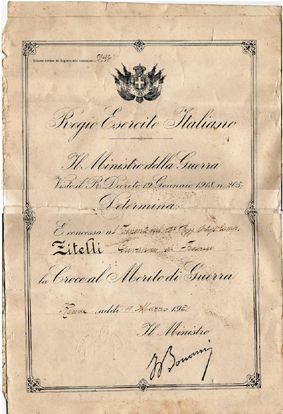 Regio Esercito Italiano
Il Ministro della Guerra
Visto il R. Decreto 19 Gennaio 1918, n. 205
Determina
È concessa al
Zitelli
la Croce al Merito di Guerra
Roma addì Marzo 192
Il Ministro
Bonomi